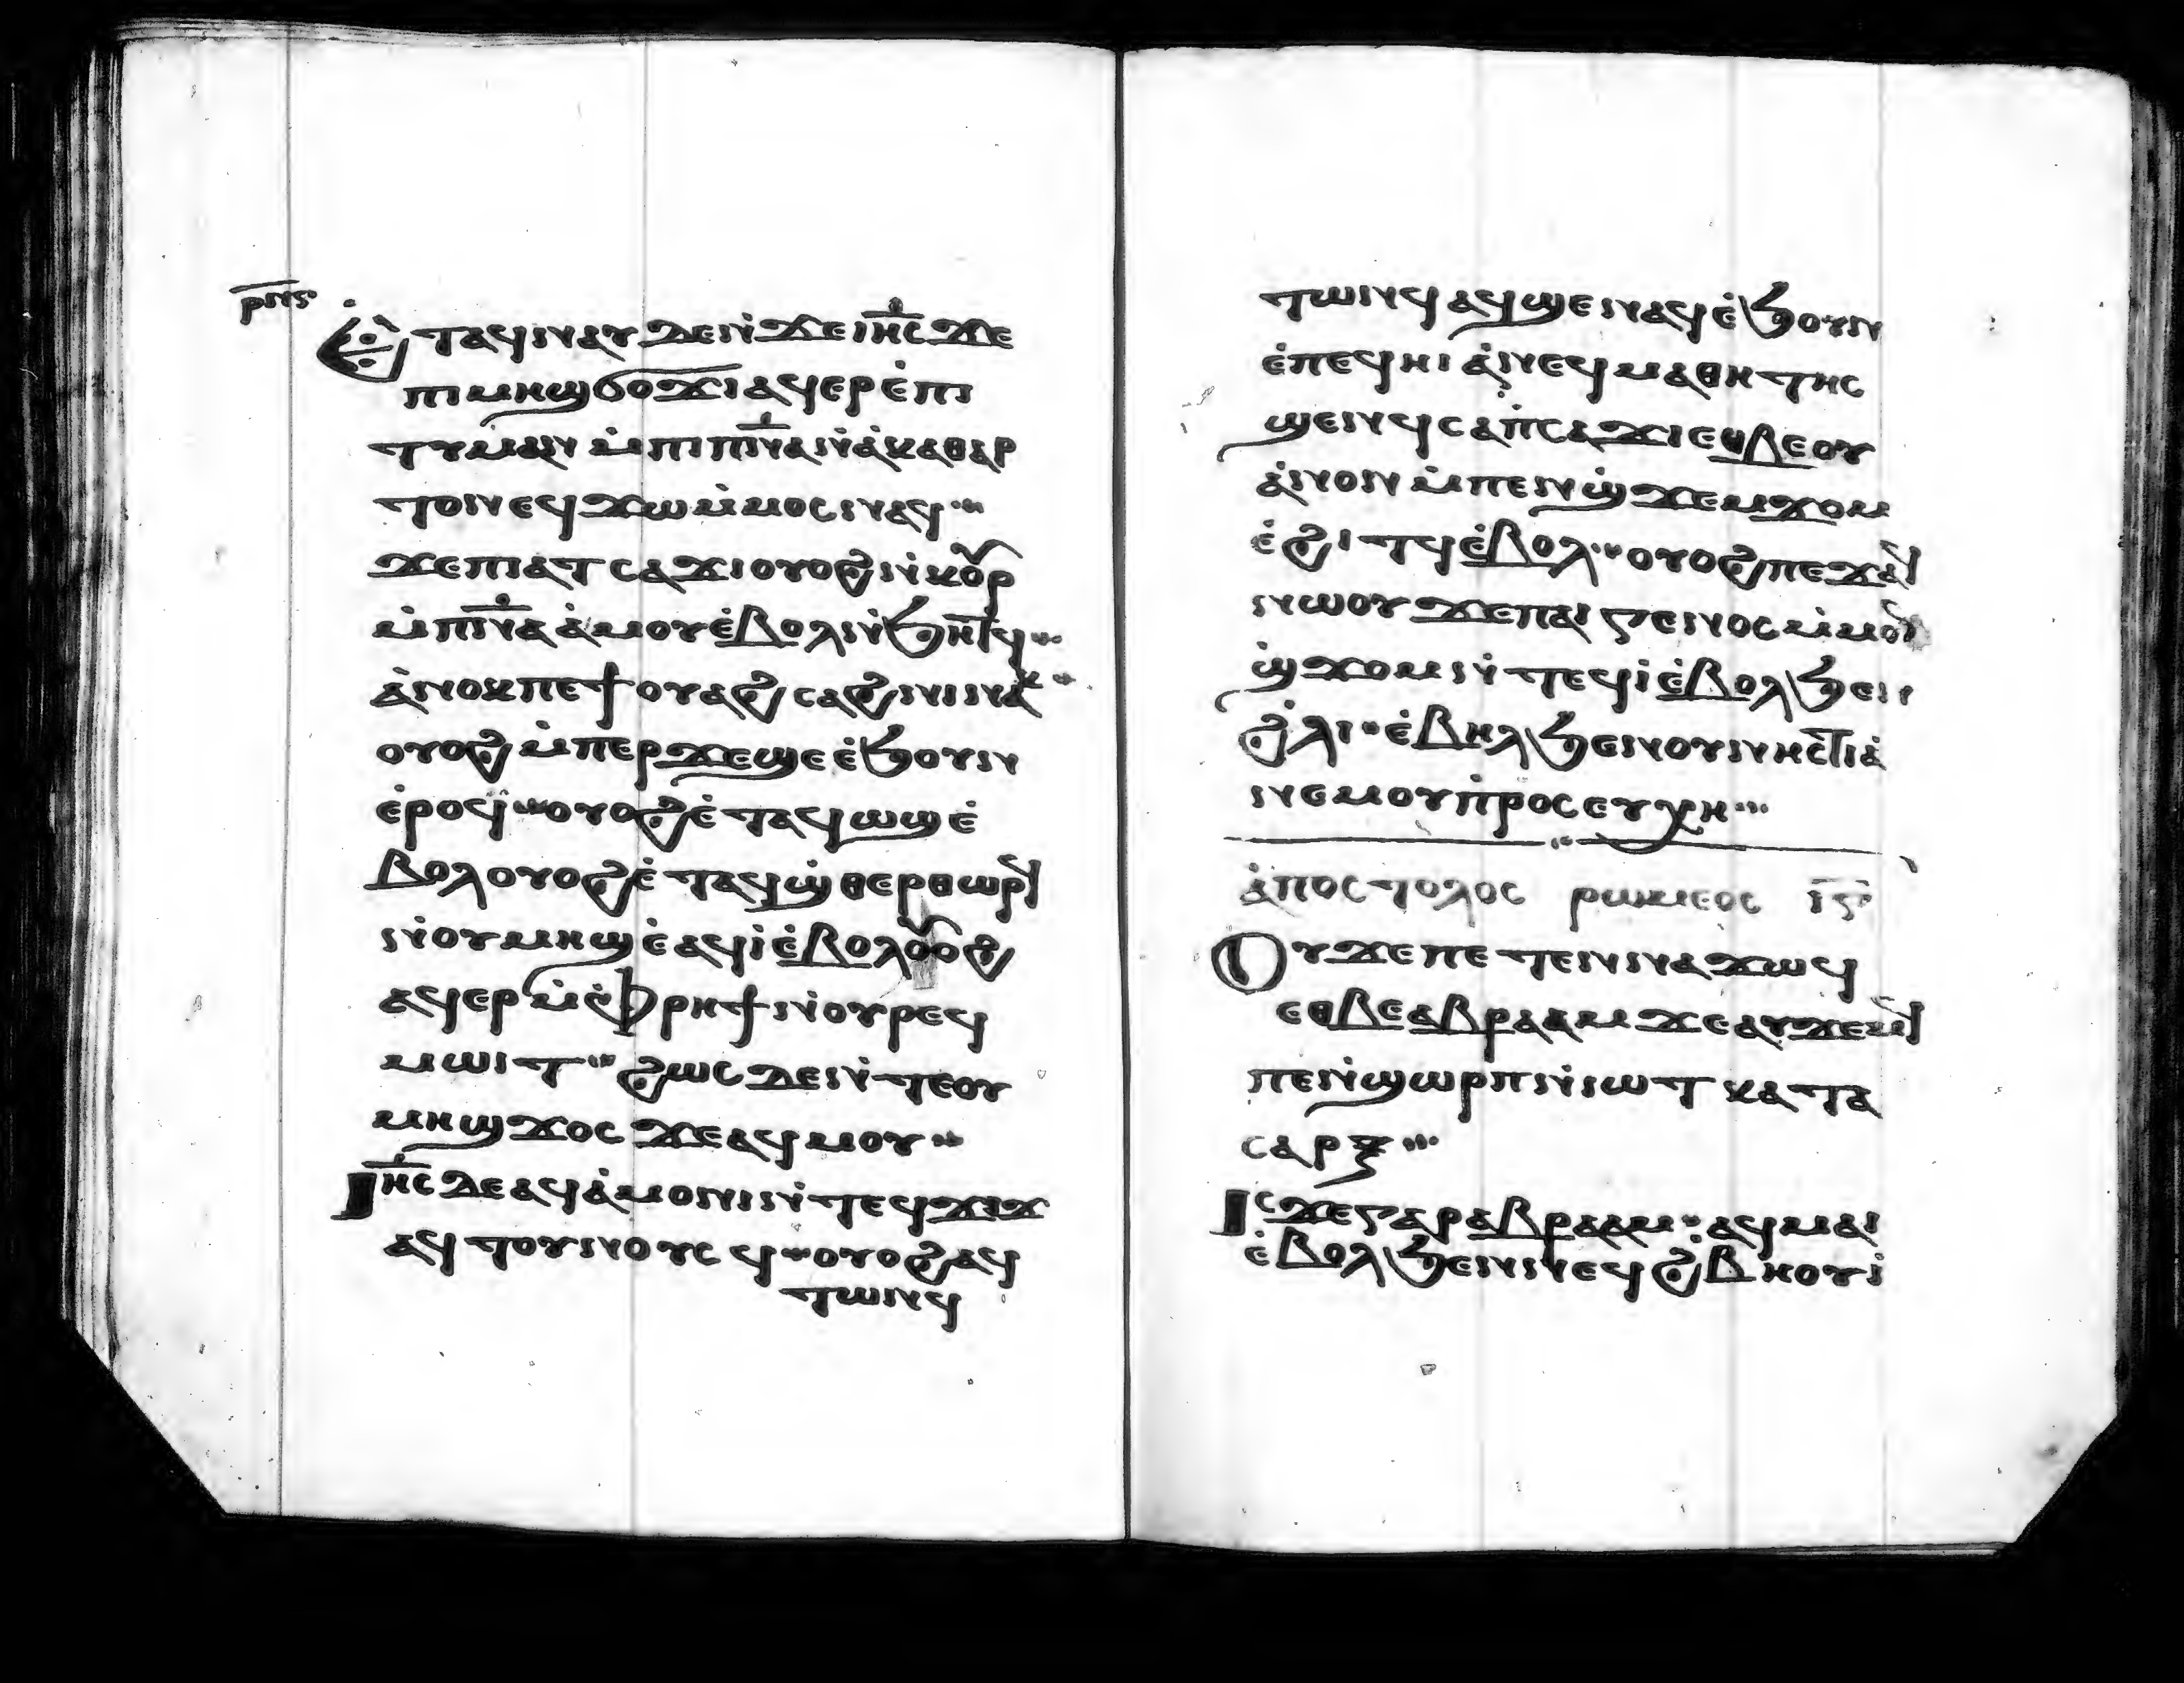 ⲣⲛⲋ
Ⲉ̀ⲧⲁϥⲛⲁⲩ ⲇⲉⲛ̀ϫⲉⲓⲏ̅ⲥ ϫⲉ
ⲡⲓⲙⲏϣ ϭⲟϫⲓ ⲁϥⲉⲣⲉ̀ⲡⲓ
ⲧⲩⲙⲁⲛ ⲙ̀ⲡⲓⲡ̅ⲛ̅ⲁ ⲛ̀ⲁ̀ⲕⲁⲑⲁⲣ
ⲧⲟⲛ ⲉϥϫⲱ ⲙ̀ⲙⲟⲥ ⲛⲁϥ
ϫⲉ ⲡⲓⲁⲧⲥⲁϫⲓ ⲟⲩⲟϩ ⲛ̀ⲕⲟⲩⲣ
ⲙ̀ⲡ̅ⲛ̅ⲁ ⲁ̀ⲙⲟⲩ ⲉ̀ⲃⲟⲗ ⲛ̀ϧⲏⲧϥ
ⲁ̀ⲛⲟⲕ ⲡⲉϯⲟⲩⲁϩⲥⲁϩⲛⲓ ⲛⲁⲕ
ⲟⲩⲟϩ ⲙ̀ⲡⲉⲣϫⲉ ϣⲉ ⲉ̀ϧⲟⲩⲛ
ⲉ̀ⲣⲟϥ ⲟⲩⲟϩ ⲉ̀ⲧⲁϥⲱϣ ⲉ̀
ⲃⲟⲗ ⲟⲩⲟϩ ⲉ̀ⲧⲁϥϣ̀ⲑⲉⲣⲑⲱⲣϥ
ⲛ̀ⲟⲩⲙⲏϣ ⲉ̀ⲁϥⲓ̀ ⲉ̀ⲃⲟⲗ ⲟⲩⲟϩ
ⲁϥⲉⲣ ⲙ̀ⲫ̀ⲣⲏϯ ⲛ̀ⲟⲩⲣⲉϥ
ⲙⲱⲓⲧ ϩⲱⲥ ⲇⲉ ⲛ̀ⲧⲉ ⲟⲩ
ⲙⲏϣ ϫⲟⲥ ϫⲉ ⲁϥⲙⲟⲩ
Ⲓⲏ̅ⲥ ⲇⲉ ⲁϥⲁ̀ⲙⲟⲛⲓ ⲛ̀ⲧⲉϥϫⲓϫ
ⲁϥⲧⲟⲩⲛⲟⲩⲥϥ ⲟⲩⲟϩ ⲁϥ
ⲧⲱⲛϥ
ⲧⲱⲛϥ ⲁϥϣⲉⲛⲁϥ ⲉ̀ϧⲟⲩⲛ
ⲉ̀ⲡⲉϥⲏⲓ ⲁ̀ⲛⲉϥⲙⲁⲑⲏⲧⲏⲥ
ϣⲉⲛϥ ⲥⲁⲡ̀ⲥⲁ ϫⲓ ⲉⲑⲃⲉ ⲟⲩ
ⲁ̀ⲛⲟⲛ ⲙ̀ⲡⲉⲛϣ̀ϫⲉⲙϫⲟⲙ
ⲉ̀ϩⲓⲧϥ ⲉ̀ⲃⲟⲗ ⲟⲩⲟϩ ⲡⲉϫⲁϥ
ⲛⲱⲟⲩ ϫⲉ ⲡⲁⲓⲅⲉⲛⲟⲥ ⲙ̀ⲙⲟⲛ
ϣ̀ϫⲟⲙ ⲛ̀ⲧⲉϥⲓ̀ ⲉ̀ⲃⲟⲗ ϧⲉⲛ
ϩ̀ⲗⲓ ⲉ̀ⲃⲏⲗ ϧⲉⲛ ⲟⲩⲛⲏⲥⲧⲓⲁ̀
ⲛⲉⲙ ⲟⲩⲡ̀ⲣⲟⲥⲉⲩⲭⲏ
ⲁ̀ⲡⲟⲥⲧⲟⲗⲟⲥ ⲣⲱⲙⲉⲟⲥ ⲓ̅ⲋ̅
Ⲟⲩ ϫⲉ ⲡⲉⲧⲉⲛⲛⲁϫⲱϥ
ⲉⲑⲃⲉ ⲁⲃⲣⲁⲁⲙ ϫⲉ ⲁⲩϫⲉⲙϥ
ⲡⲉⲛ̀ϣⲱⲣⲡ ⲛ̀ⲓⲱⲧ ⲕⲁⲧⲁ
ⲥⲁⲣⲝ
Ⲓⲥϫⲉ ⲅⲁⲣ ⲁⲃⲣⲁⲁⲙ ⲁϥⲙⲁⲓ
ⲉ̀ⲃⲟⲗ ϧⲉⲛ ⲛⲉϥϩ̀ⲃⲏⲟⲩⲓ̀